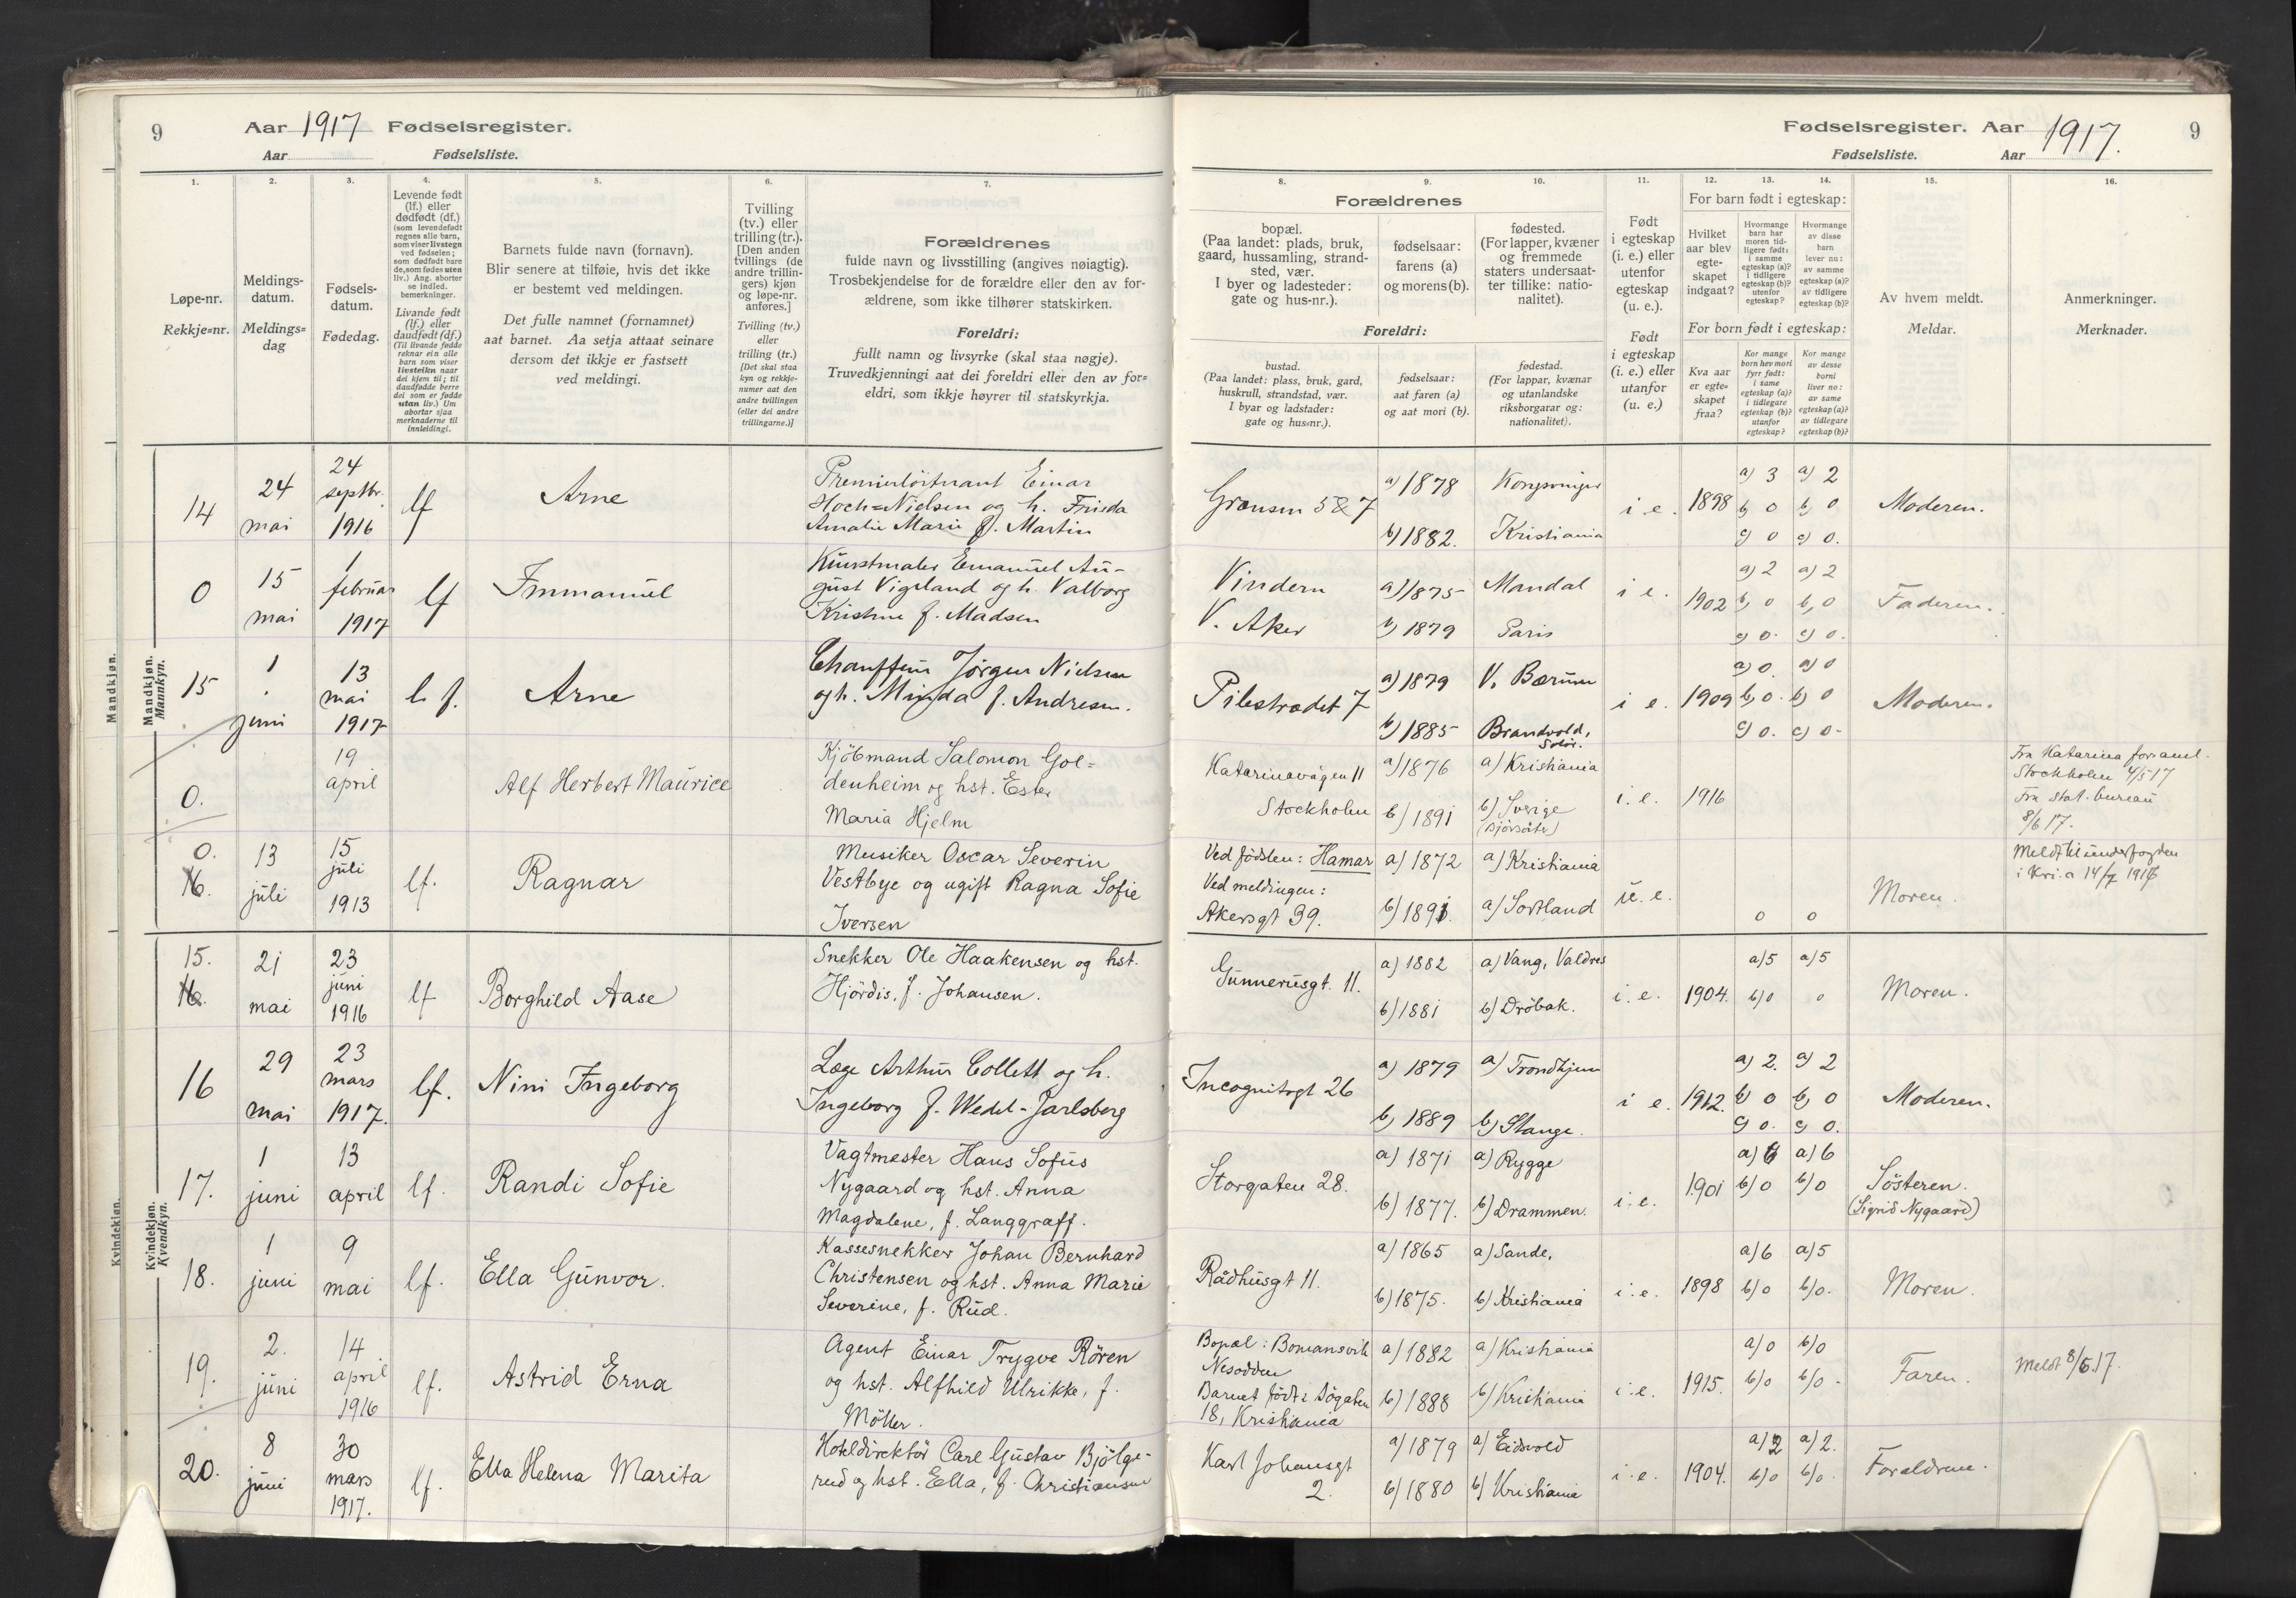 9
Aar 1917 Fødselsregister.
Aar
Fødselsliste.
Fødselsregister. Aar 1917.
9
Fødselsliste.
Aar
1.
Løpe-nr.
Rekkje=nr.
2.
Meldings-
datum.
Meldings=
dag
3.
Fødsels-
datum.
Fødedag.
4.
Levende født
(lf.) eller
dødfødt (df.)
(som levendefødt
regnes alle barn,
som viser livstegn
ved fødselen;
som dødfødt bare
de, som fødes uten
liv.) Ang. aborter
se indled.
bemerkninger.
Livande født
(lf.) eller
daudfødt (df.)
(Til livande fødde
reknar ein alle
barn som viser
livsteikn naar
dei kjem til; til
daudfødde berre
dei som er fødde
utan liv.) Um
abortar sjaa
merknaderne til
innleidingi.
5.
Barnets fulde navn (fornavn).
Blir senere at tilføie, hvis det ikke
er bestemt ved meldingen.
Det fulle namnet (fornamnet)
aat barnet. Aa setja attaat seinare
dersom det ikkje er fastsett
ved meldingi.
6.
Tvilling
(tv.) eller
trilling (tr.).
[Den anden
tvillings (de
andre trillin-
gers) kjøn
og løpe-nr.
anføres.]
Tvilling (tv.)
eller
trilling (tr.)
[Det skal staa
kyn og rekkje-
numer aat den
andre tvillingen
(eller dei andre
trillingarne.)]
7.
Forældrenes
fulde navn og livsstilling (angives nøiagtig).
Trosbekjendelse for de forældre eller den av for-
ældrene, som ikke tilhører statskirken.
Foreldri:
fullt namn og livsyrke (skal staa nøgje).
Truvedkjenningi aat dei foreldri eller den av for=
eldri, som ikkje høyrer til statskyrkja.
8.
Forældrenes
bopæl.
(Paa landet: plads, bruk,
gaard, hussamling, strand-
sted, vær.
I byer og ladesteder:
gate og hus-nr.).
Foreldri:
bustad.
(Paa landet: plass, bruk, gard,
huskrull, strandstad, vær.
I byar og ladstader:
gate og hus=nr.).
9.
fødselsaar:
farens (a)
og morens (b).
fødselsaar:
aat faren (a)
og aat mori (b).
10.
fødested.
(For lapper, kvæner
og fremmede
staters undersaat-
ter tillike: natio-
nalitet).
fødestad.
(For lappar, kvænar
og utanlandske
riksborgarar og:
nationalitet).
11.
Født
i egteskap
(i. e.) eller
utenfor
egteskap
(u. e.).
Født
i egteskap
(i. e.) eller
utanfor
(u. e.)
12.
For barn født i egteskap:
Hvilket
aar blev
egte-
skapet
indgaat?
For born født i egteskap:
Kva aar
er egte=
skapet
fraa?
13.
Hvormange
barn har
moren tid-
ligere født:
i samme
egteskap (a)?
i tidligere
egteskap (b)?
utenfor
egteskap?
Kor mange
born hev mori
fyrr født:
i same
egteskap (a)?
i tidlegare
egteskap (b)?
utanfor
egteskap?
14.
Hvormange
av disse
barn
lever nu:
av samme
egteskap (a)?
av tidligere
egteskap (b)?
Kor mange
av desse
borni
liver no:
av same
egteskap (a)?
av tidlegare
egteskap (b)?
15.
Av hvem meldt.
Meldar.
16.
Anmerkninger.
Merknader.
Mandkjøn.
Mandkjøn.
Mannkyn.
14
24
mai
24
septbr.
1916
lf
Arne
Premierløitnant Einar
Hoch=Nielsen og h. Frieda
Amalie Marie f. Martin
Grænsen 5 & 7
a) 1878
b) 1882.
Kongsvinger
Kristiania
i e.
1898
a) 3
b) 0
c) 0
a) 2
b) 0
c) 0.
Moderen.
0
15
mai
1
februar
1917
lf
Immanuel
Kunstmaler Emanuel Au-
gust Vigeland og h. Valborg
Kristine f. Madsen
Vindern
V. Aker
a) 1875
b) 1879
Mandal
Paris
i e.
1902
a) 2
b) 0
c) 0.
a) 2
b) 0
c) 0.
Faderen.
15
1
juni
13
mai
1917
l. f.
Arne
Chauffeur Jørgen Nielsen
og h. Minda f. Andresen.
Pilestrædet 7
a) 1879
b) 1885
V. Bærum
Brandvold,
Solør.
i e.
1909
a) 0.
b) 0.
c) 0.
a) 0
b) 0
c) 0-
Moderen.
0.
19
april
Alf Herbert Maurice
Kjöbmand Salomon Gol=
denheim og hst. Ester
Maria Hjelm
Katarinavägen 11
Stockholm
a) 1876
b) 1891
a) Kristiania
b) Sverige
i. e.
1916
Fra Katarina forsaml.
Stockholm 4/5 17
Fra stat. bureau
8/6 17.
0.
16.
13
juli
15
juli
1913
lf.
Ragnar
Musiker Oscar Severin
Vestbye og ugift Ragna Sofie
Iversen
Ved fødslen: Hamar
Ved meldingen:
Akersgt 39.
a) 1872
b) 1891
a) Kristiania
a) Sortland
u. e.
0
0
Moren.
Meldt til underfogden
i Kr.a 14/7 1917
Kvindekjøn.
Kvindekjøn.
Kvendkyn.
15.
16.
21
mai
23
juni
1916
lf
Borghild Aase
Snekker Ole Haakensen og hst.
Hjördis, f. Johansen.
Gunnerusgt. 11.
a) 1882
b) 1881
a) Vang, Valdres
b) Dröbak.
i. e.
1904.
a) 5
b) 0
a) 5
0
Moren.
16
29
mai
23
mars
1917.
lf.
Nini Ingeborg
Læge Arthur Collett og h.
Ingeborg f. Wedel-Jarlsberg
Incognitogt 26
a) 1879
b) 1889
a) Trondhjem
b) Stange.
i e.
1912.
a) 2.
b) 0
c) 0.
a) 2
b) 0
c) 0.
Moderen.
17.
1
juni
13
april
lf.
Randi Sofie
Vagtmester Hans Sofus
Nygaard og hst. Anna
Magdalene, f. Langgraff.
Storgaten 28.
a) 1871
b) 1877.
a) Rygge
b) Drammen.
i. e.
1901
a) 6
b) 0
a) 6
b) 0
Sösteren.
(Sigrid Nygaard)
18.
1
juni
9
mai
lf.
Ella Gunvor.
Kassesnekker Johan Bernhard
Christensen og hst. Anna Marie
Severine, f. Rud.
Rådhusgt 11.
a) 1865
b) 1875.
a) Sande,
b) Kristiania
i. e.
1898
a) 6
b) 0
a) 5
b) 0.
Moren.
19.
2.
juni
14
april
1916
lf.
Astrid Erna
Agent Einar Trygve Rören
og hst. Alfhild Ulrikke, f.
Möller.
Bopæl: Bomansvik
Nesodden
Barnet født:
18, Kristiania
a) 1882
b) 1888
a) Kristiania
b) Kristiania
i. e.
1915.
a) 0
b) 0
b) 0
b) 0-
Faren.
Meldt 8/6.17.
20.
8
juni
30
mars
1917.
lf.
Ella Helena Marita
Hoteldirektör Carl Gustav Bjölge-
rud og hst. Ella, f. Christiansen
Karl Johansgt
2.
a) 1879
b) 1880
a) Eidsvold
b) Kristiania
i. e.
1904.
a) 2
b) 0
a) 2.
b) 0.
Forældrene.